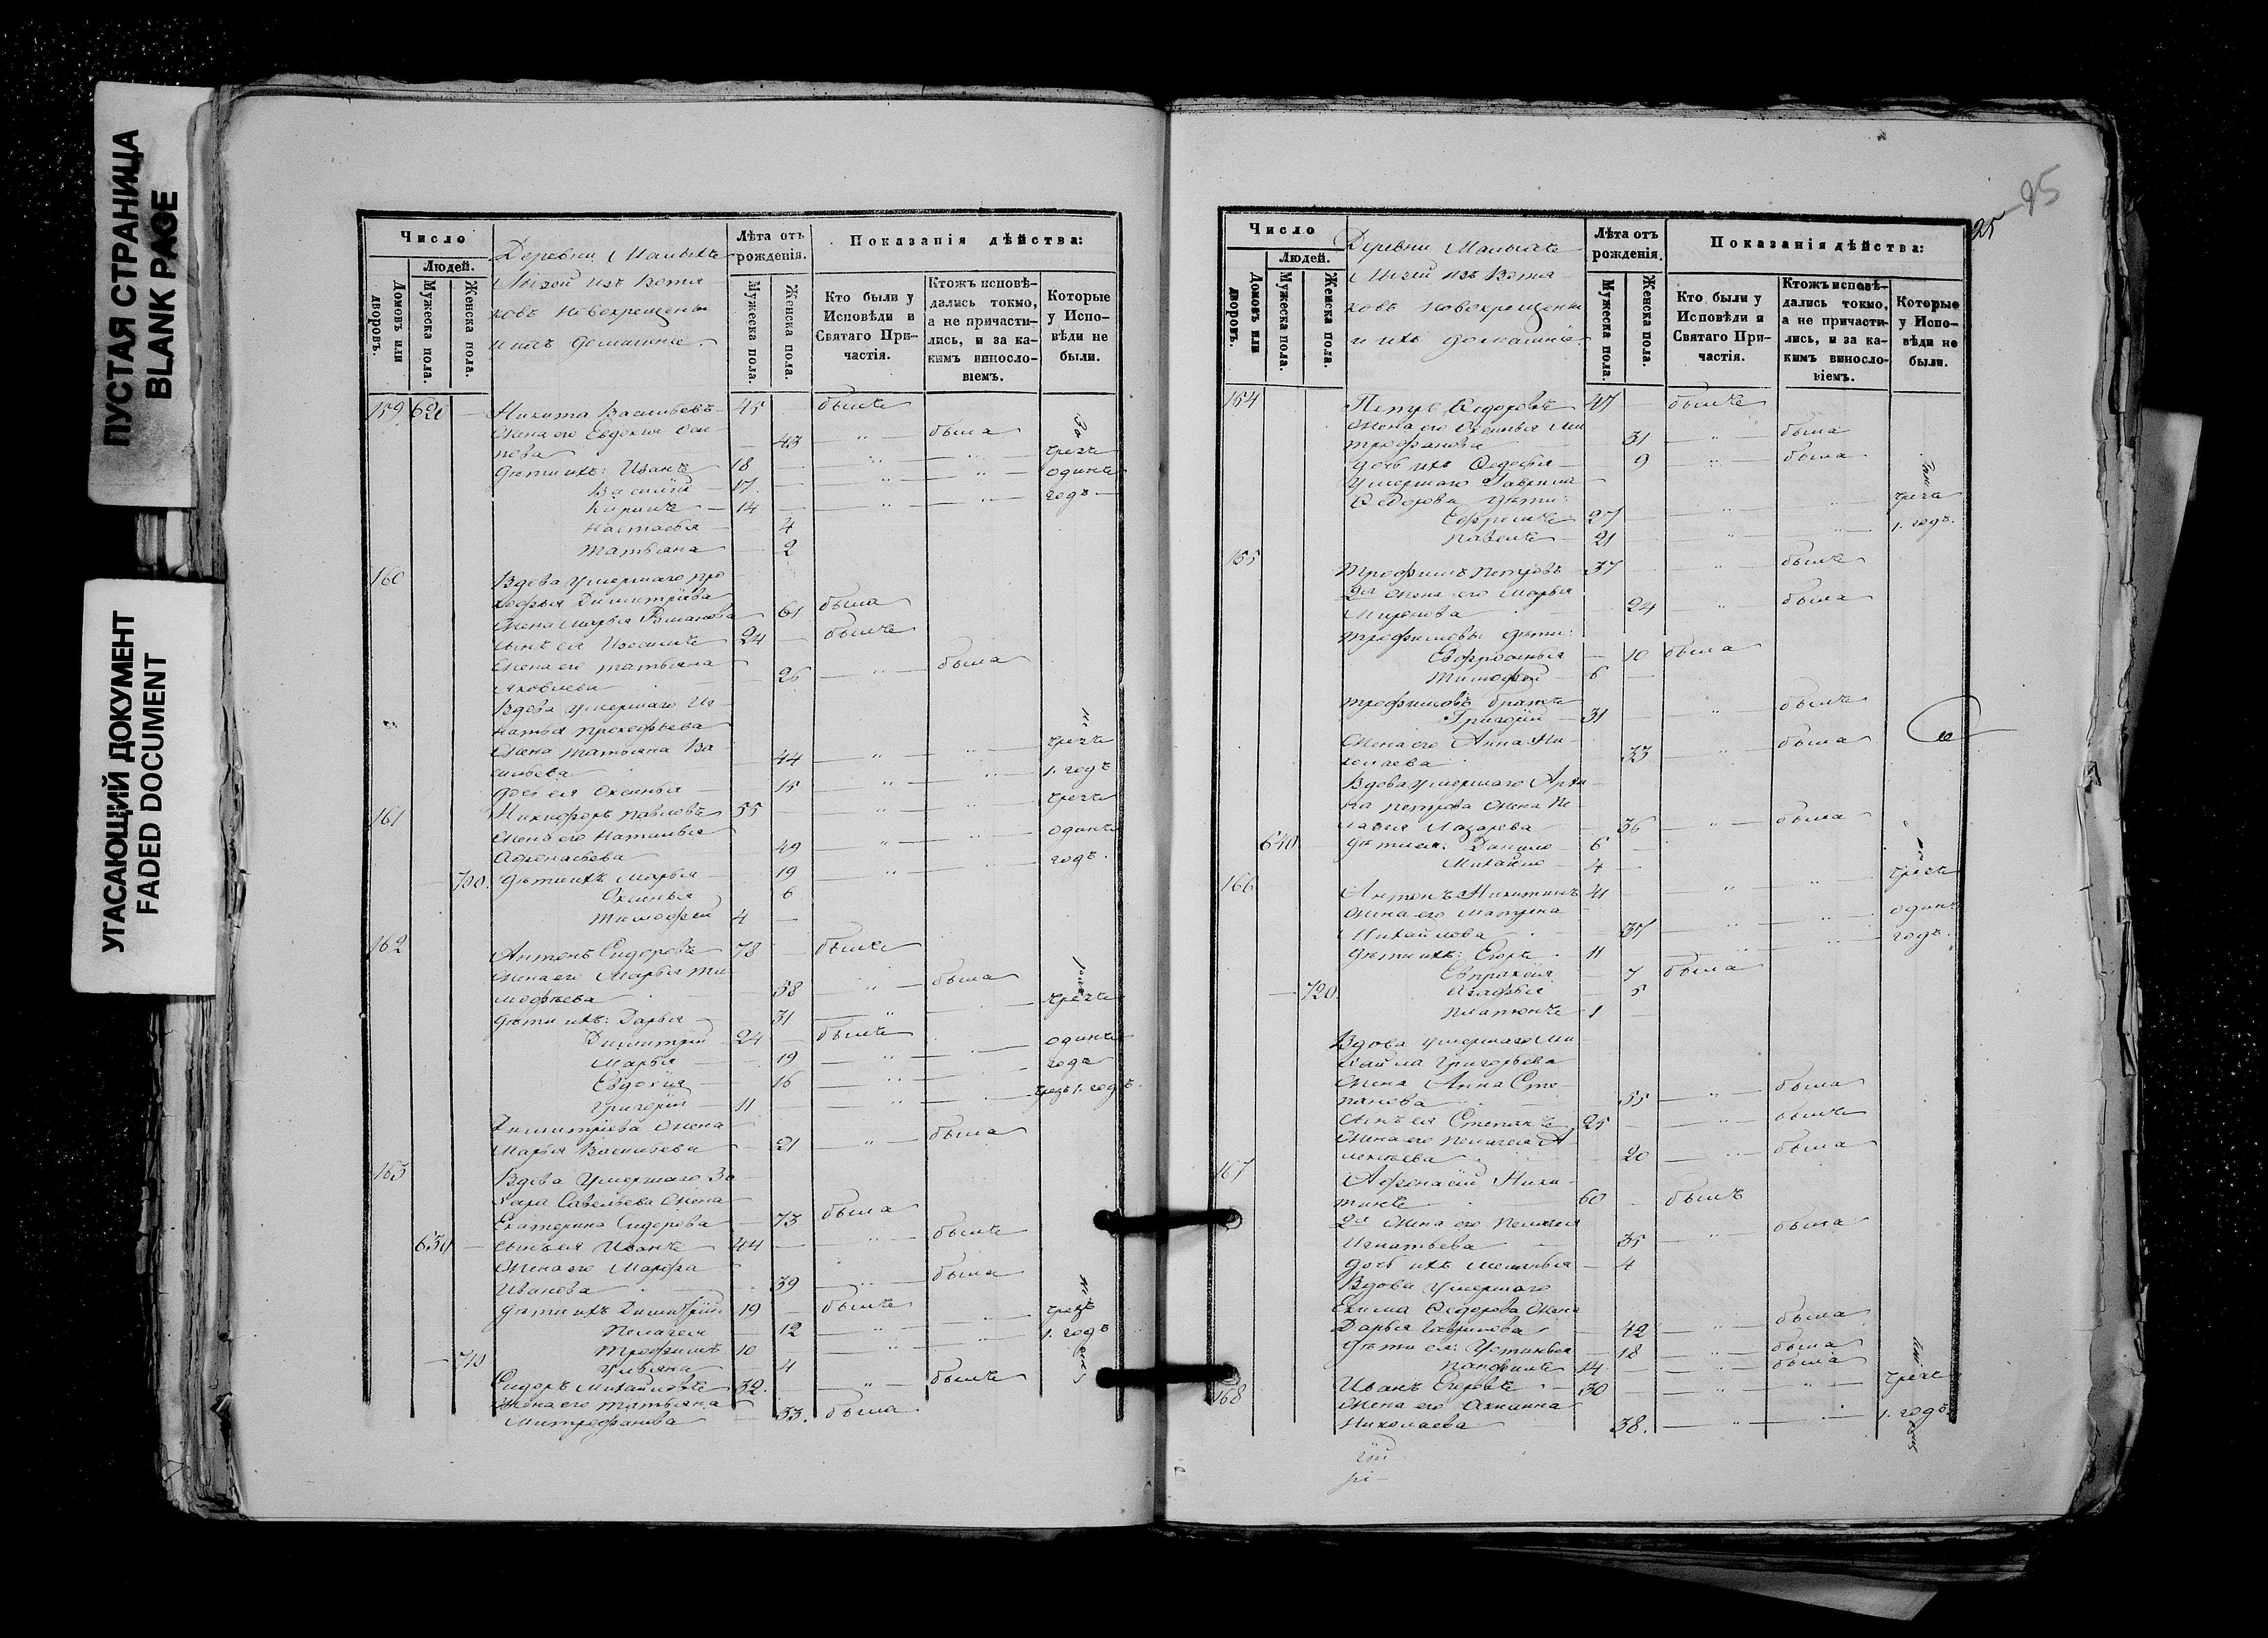 ПУСТАЯ СТРАНИЦА
BLANK PAGE
УГАСАЮЩИЙ ДОКУМЕНТ
FADED DOCUMENT
Число
Людей.
Домовъ или дворовъ.
Мужеска пола.
Женска пола.
Деревни Малыхъ
изъ Вотя-
ковъ новокрещены
и ихъ домашніе.
Лѣта отъ рожденія.
Мужеска пола.
Женска пола.
Показанія дѣйства:
Кто были у Исповѣди и Святаго Причастія.
Ктожъ исповѣдались токмо, а не причастились, и за какимъ винословіемъ.
Которые у Исповѣди не были.
159 620 — Никита Васильевъ 45 — былъ
жена его Евдокія Оси-
пова — 43 " — была
дѣти ихъ: Иванъ 18 — чрезъ
Василій 17 — одинъ
Кирилъ 14 — годъ
Настасья — 4
Татьяна — 2
160 Вдова умершаго Про
кофья Димитріева
жена Марья Романова 61 была
сынъ ея 24 — былъ
жена его Татьяна
Яковлева — 26 " — была
Вдова умершаго Иг
натья Прокофьева
жена Татьяна Ва
сильева — 44 " чрезъ
дочь ея Оксинья 15 " 1. годъ
161 Никифоръ Павловъ 55 " чрезъ
жена его Наталья
Афонасьева 49 " одинъ
— 700. дѣти ихъ Марья — 19 " годъ.
Оксинья 6
Тимофей 4 —
162 Антонъ Сидоровъ 78 — былъ
жена его Марья Ти
мофѣева — 58 " — была
дѣти ихъ: Дарья — 31 " чрезъ
Димитрій 24 — былъ
Марья — 19 " одинъ
Евдокія — 16 " годъ
Григорій 11 — " чрезъ 1. годъ.
Димитріева жена
Марья Васильева — 21 " — была
163 Вдова умершаго За
хара Савельева жена
Екатерина Сидорова — 73 была
630 — сынъ ея Иванъ 44 — " былъ
жена его Марфа
Иванова — 39 " — была
дѣти ихъ Димитрій 19 — былъ
Пелагея — 12 " чрезъ
Трофимъ 10 " 1. годъ
— 710 Ульяна — 4
Сидоръ Михайловъ 32. " — былъ
жена его Татьяна
Митрофанова — 33. была
95
95
Число
Людей.
Домовъ или дворовъ.
Мужеска пола.
Женска пола.
Деревни Малыхъ
изъ Вотя-
ковъ новокрещены
и ихъ домашніе
Лѣта отъ рожденія.
Мужеска пола.
Женска пола.
Показанія дѣйства:
Кто были у Исповѣди и Святаго Причастія.
Ктожъ исповѣдались токмо, а не причастились, и за какимъ винословіемъ.
Которые у Исповѣди не были.
154 Петръ Федоровъ 47 — былъ
жена его Оксинья Ми
трофанова — 31 " — была
дочь их Федосья — 9 " — была
умершаго Гаврила
Федорова дѣти: чрезъ
Ефремъ 27 — " 1. годъ.
Павелъ 21
155 Трофимъ Петровъ 37 — " былъ
2я жена его Марья
Миронова 24 " — была
Трофимовы дѣти:
Евфросинья — 10 была
Тимофей 6 —
Трофимовъ братъ
Григорій 31 — " былъ
жена его Анна Ни
колаева 33 " — была
Вдова умершаго
Петрова жена Пе
лагея Лазарева — 36 " — была
640 дѣти ея. Данило 6 —
Михайло 4 —
166 Антонъ Никитинъ 41 " чрезъ
жена его Матрена
Михайлова 37 " одинъ
дѣти ихъ: Егоръ 11 — " годъ.
Евпраксія — 7 была
— 720. Агафья — 5
Платонъ 1 —
Вдова умершаго Ми
хайла Григорьева
жена Анна Сте
панова 55 " — была
сынъ ея Степанъ 25 — " былъ
жена его Пелагея А
лексѣева 20 " — была
167 Афонасій Ники
тинъ 60 — былъ
2я жена его Пелагея
Игнатьева 35 " — была
дочь ихъ — 4
Вдова умершаго
Екима Федорова жена
Дарья Гаврилова — 42 " — была
дѣти ея: Устинья — 18 " — была
14 — " была
168 Иванъ Егоровъ 30 — " чрезъ
жена его Акилина
Николаева 38. " 1. годъ.